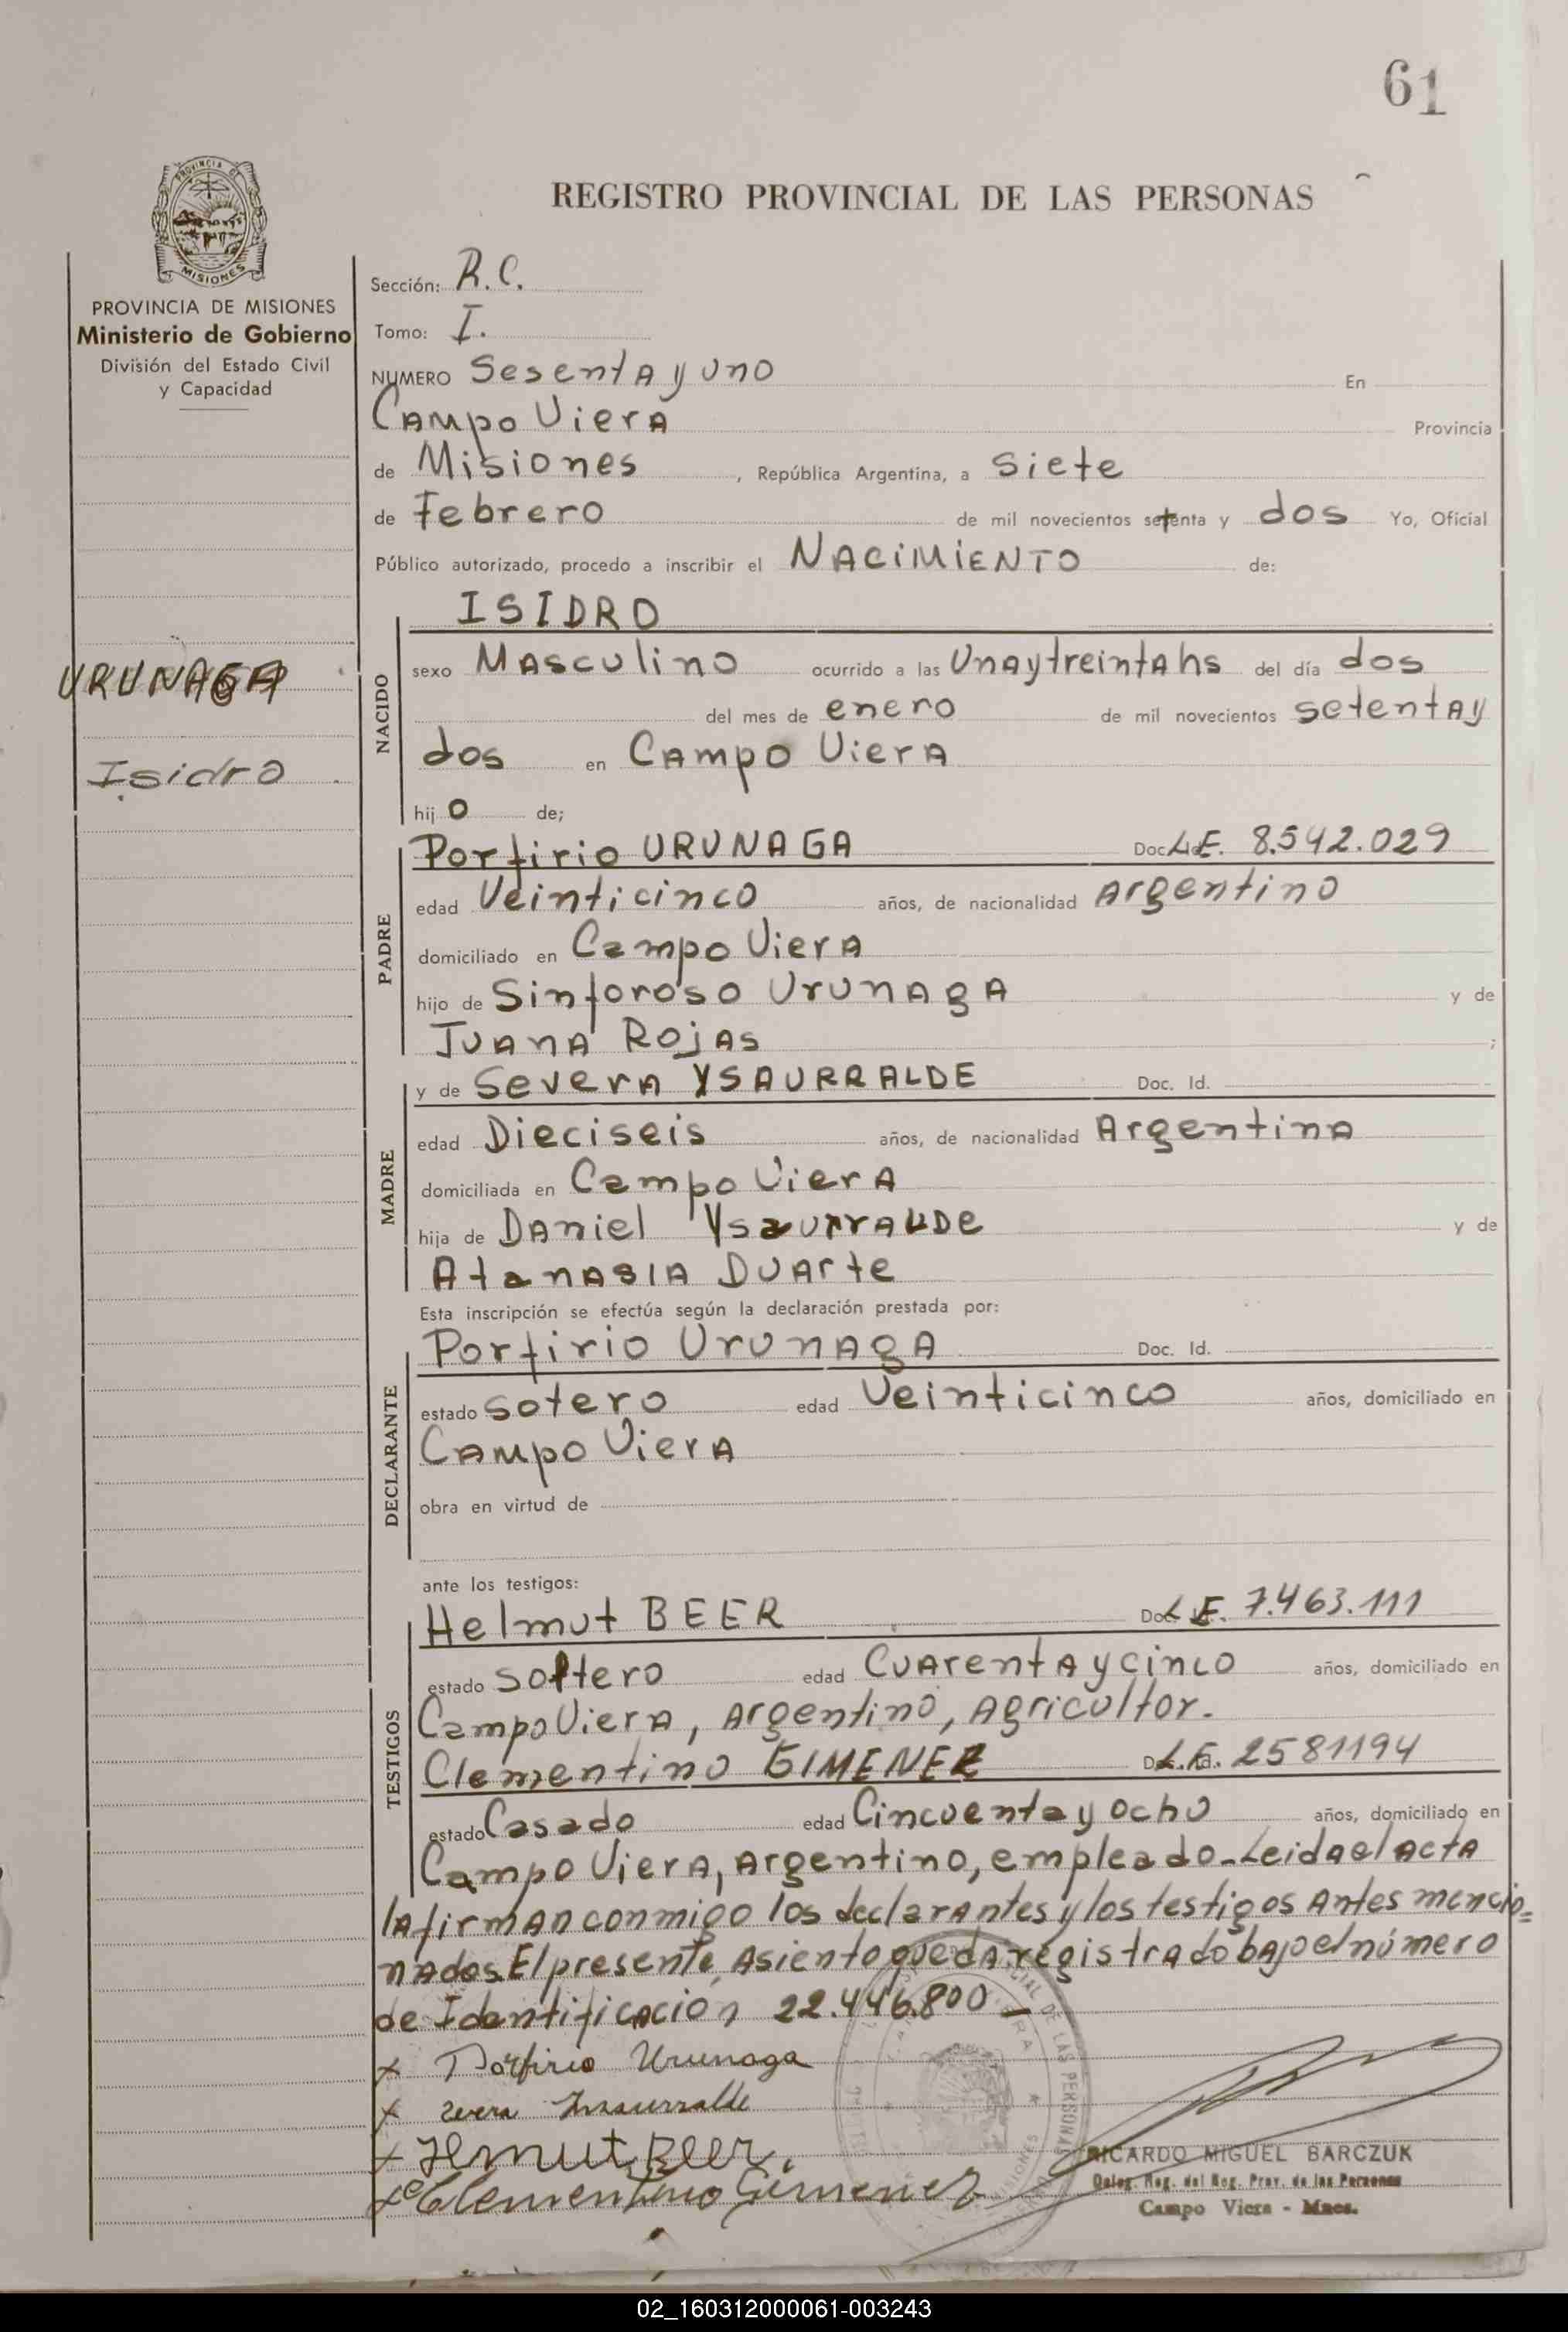 61
REGISTRO PROVINCIAL DE LAS PERSONAS
PROVINCIA DE
MISIONES
PROVINCIA DE MISIONES
Ministerio de Gobierno
División del Estado Civil
y Capacidad
URUNAGA
Isidro
Sección: R.C.
Tomo: I.
NUMERO Sesenta y uno En
Campo Viera Provincia
de Misiones, República Argentina, a siete
de Febrero de mil novecientos setenta y dos Yo, Oficial
Público autorizado, procedo a inscribir el NACIMIENTO de:
ISIDRO
NACIDO
sexo Masculino ocurrido a las Unaytreintahs del día dos
del mes de enero de mil novecientos setentay
dos en Campo Viera
hijo de;
PADRE
Porfirio URUNAGA Doc. L.E. 8.542.029
edad Veinticinco años, de nacionalidad Argentino
domiciliado en Campo Viera
hijo de Sinforoso Urunaga y de
Juana Rojas ;
MADRE
y de Severa YSAURRALDE Doc. Id.
edad Dieciseis años, de nacionalidad Argentina
domiciliada en Campo Viera
hija de Daniel Ysaurralde y de
Atanasia Duarte
Esta inscripción se efectúa según la declaración prestada por:
DECLARANTE
Porfirio Urunaga Doc. Id.
estado sotero edad Veinticinco años, domiciliado en
Campo Viera
obra en virtud de
ante los testigos:
TESTIGOS
Helmut BEER Doc. L.E. 7.463.111
estado soltero edad Cuarenta y cinco años, domiciliado en
Campo Viera, Argentino, Agricultor.
Clementino GIMENEZ L.E. 2581194
estado Casado edad Cincuenta y ocho años, domiciliado en
Campo Viera, Argentino, empleado-Leida el acta
la firman conmigo los declarantes y los testigos antes mencio=
nados. El presente asiento queda registrado bajo el número
de Identificación 22.446.800 -
x Porfirio Urunaga
x Insaurralde
x Helmut Beer.
x Clementino Gimenez
RICARDO MIGUEL BARCZUK
Deleg. Reg. del Reg. Prov. de las Personas
Campo Viera - Mnes.
02_160312000061-003243